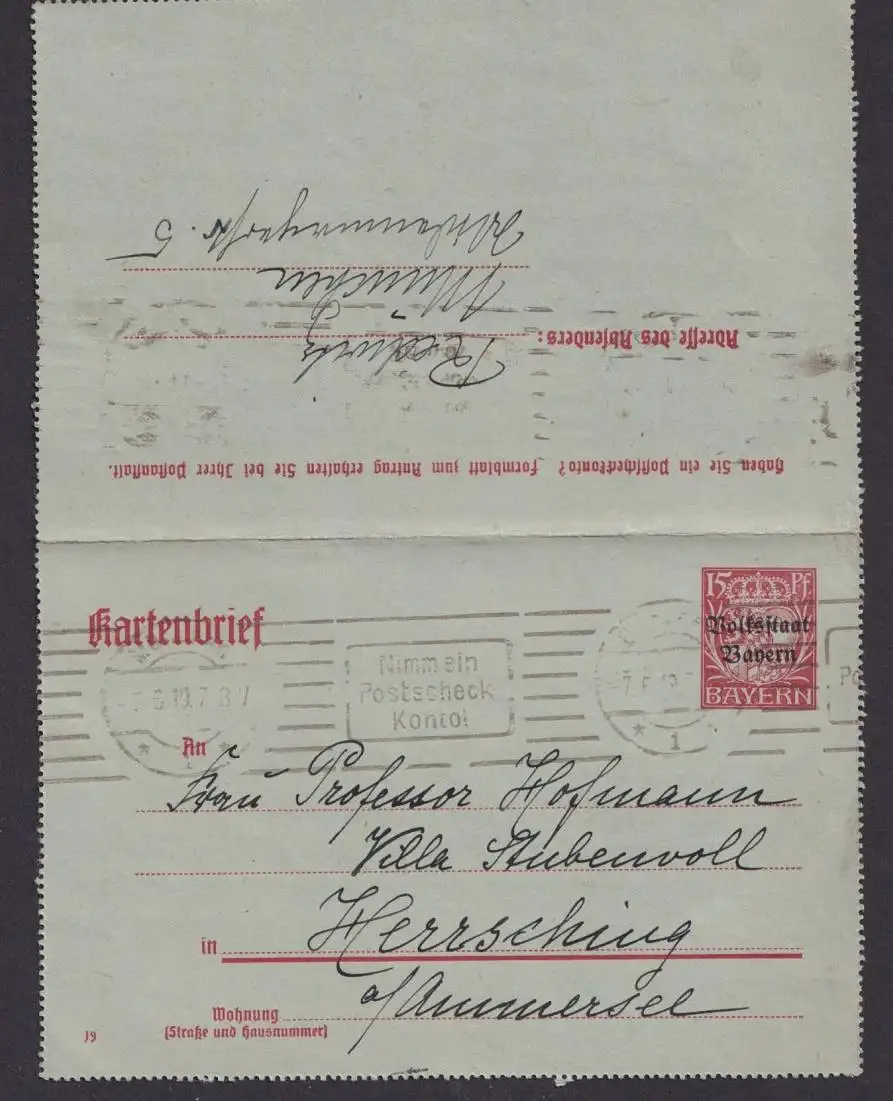 Haben Sie ein Postscheckkonto? Formblatt zum Antrag erhalten Sie bei Ihrer Postanstalt.
Adresse des Absenders:
München
Nr. 5
Kartenbrief
15 Pf.
Volksstaat
Bayern
BAYERN
Nimm ein
Postscheck
Konto!
-7.6.19.7
1
An
Frau Professor Hofmann
Villa Stubenvoll
in Herrsching
a/Ammersee
Wohnung
(Straße und Hausnummer)
J9